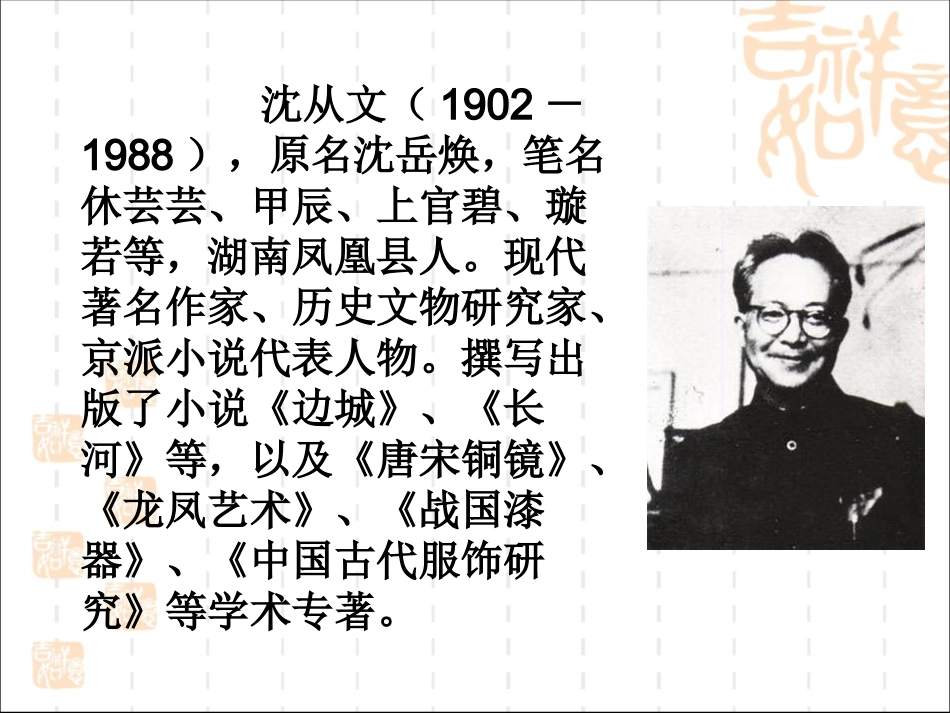 吉祥如意
沈从文（ 1902 －
1988 ），原名沈岳焕，笔名
休芸芸、甲辰、上官碧、璇
若等，湖南凤凰县人。现代
著名作家、历史文物研究家、
京派小说代表人物。撰写出
版了小说《边城》、《长
河》等，以及《唐宋铜镜》、
《龙凤艺术》、《战国漆
器》、《中国古代服饰研
究》等学术专著。
吉祥如意
吉祥如意
吉祥如意